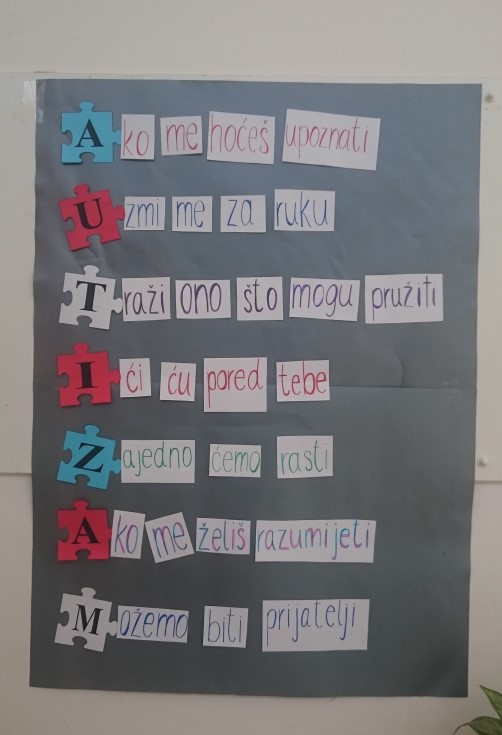 Ako me hoćeš upoznati
Uzmi me za ruku
Traži ono što mogu pružiti
Ići ću pored tebe
Zajedno ćemo rasti
Ako me želiš razumijeti
Možemo biti prijatelji